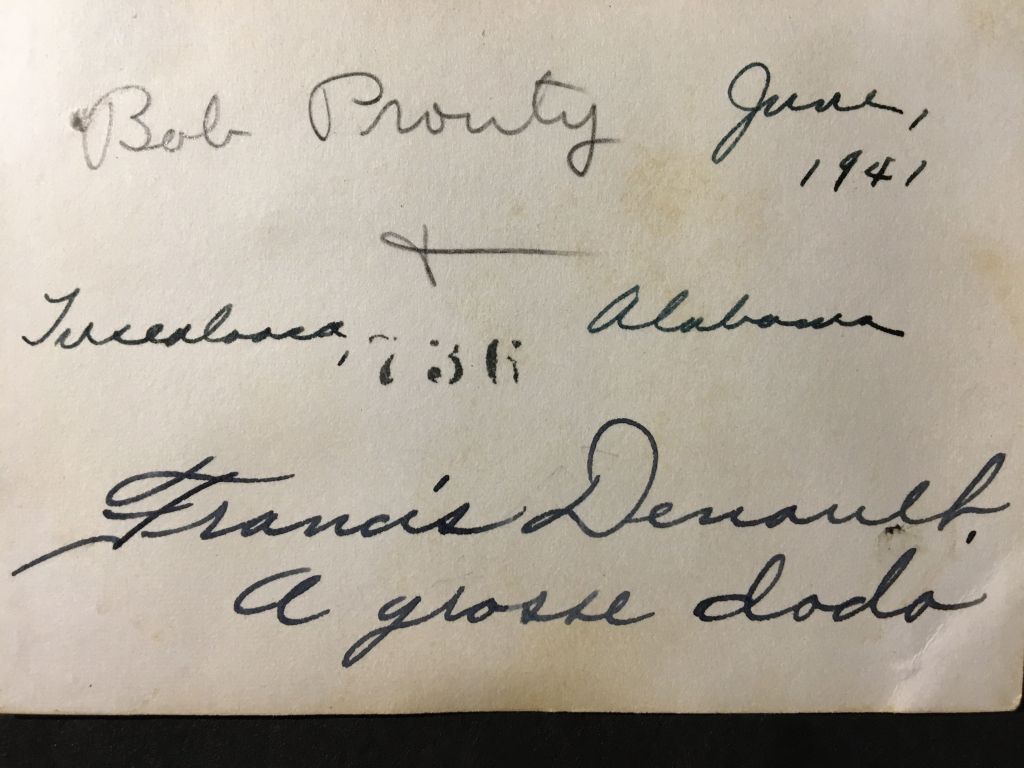 Bob Prouty June,
1941
Tuscaloosa, Alabama
736
Francis Denault,
A grosse dodo